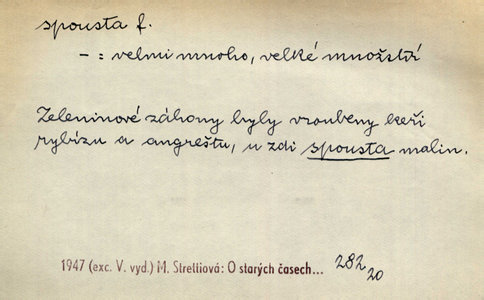 spousta f.
- : velmi mnoho, velké množství
Zeleninové záhony byly vroubeny keři
rybízu a angreštu, u zdi spousta malin.
1947 (exc. V. vyd.) M. Strettiová: O starých časech... 282
20